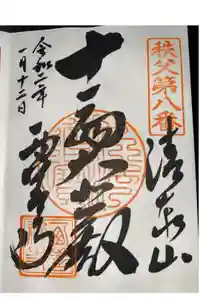 秩父第八番
清泰山
十一面大殿
西善寺
令和二年
一月十二日